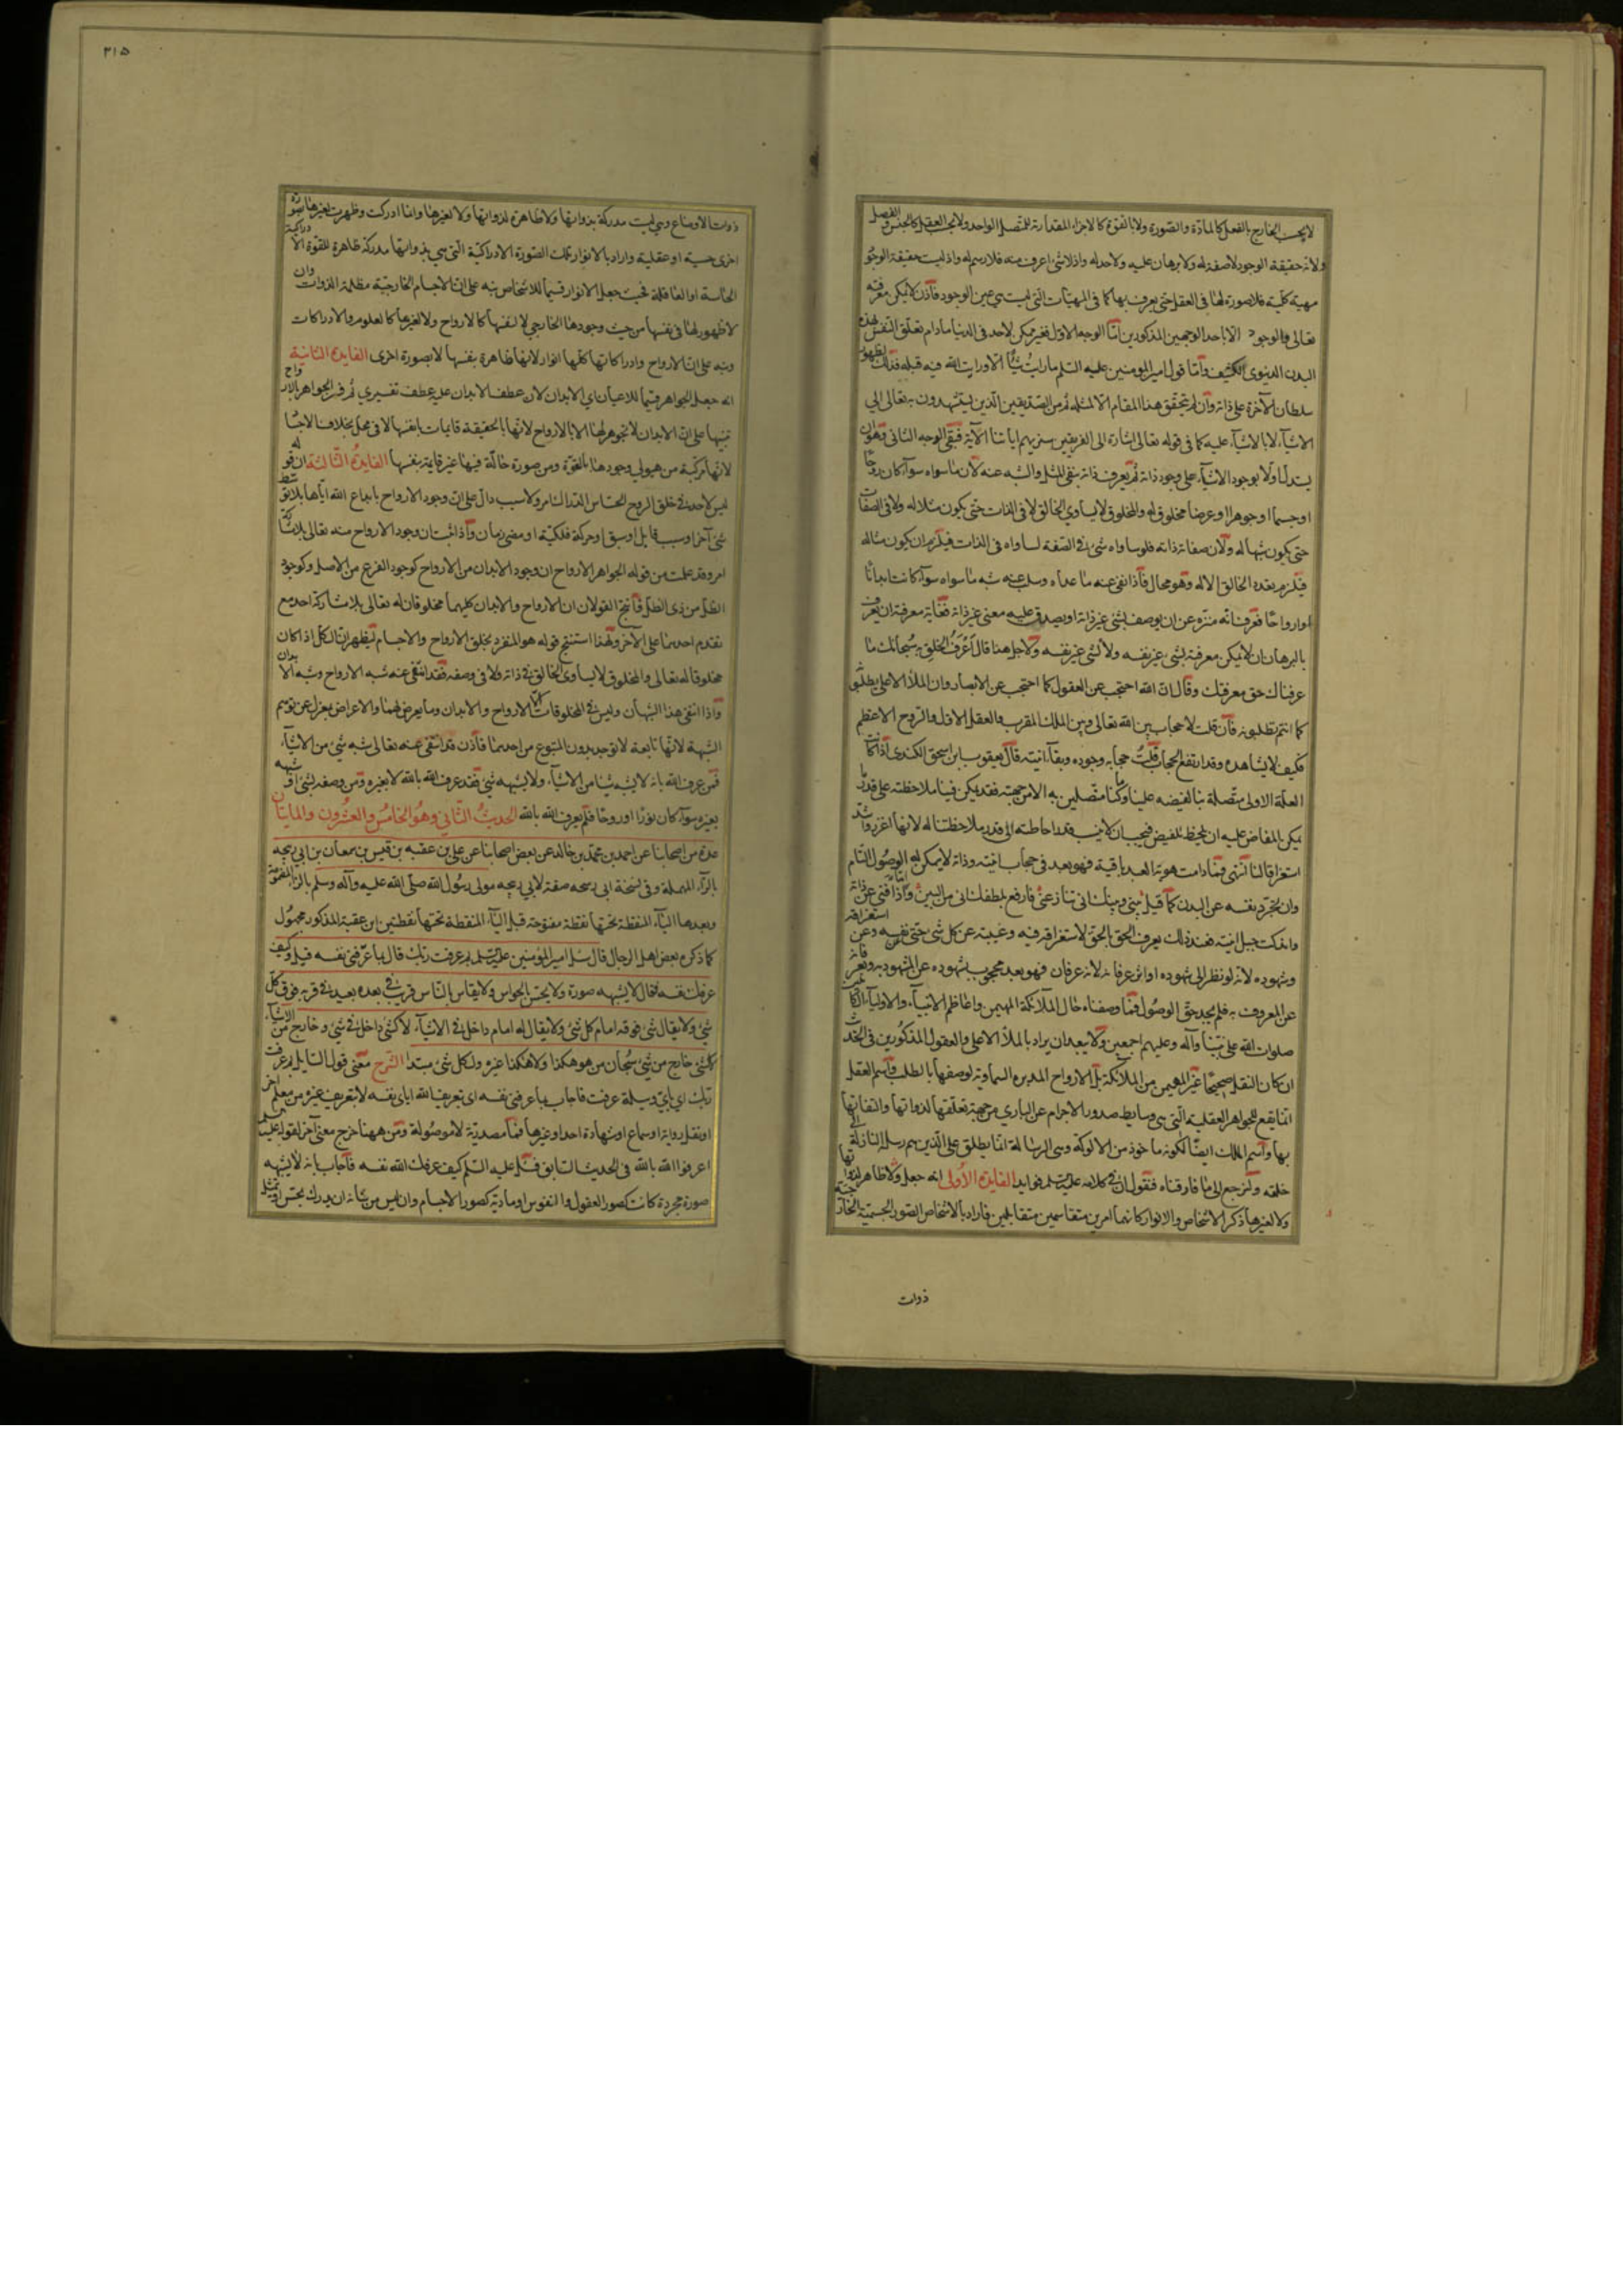 لا بحسب الخارج بالفعل كالمادّة والصّورة ولا بالقوّة كالاجزاء المقداريّة للمتّصل الواحد ولا بحسب العقل كالجنس والفصل
ولانّ حقيقة الوجود لا صفة له ولا برهان عليه ولا حد له واذ لا شئ اعرف منه فلا رسم له واذ ليست حقيقة الوجود
مهيّة كلّيّة فلا صورة لها فى العقل حتى يعرف بها كما فى المهيّات الّتى ليست هي عين الوجود فاذن لا يمكن معرفته
تعالى الا باحد الوجهين المذكورين امّا الوجه الاوّل فغير ممكن لاحد فى الدنيا مادام تعلّق النفس بهذه
البدن الدنيوى الكثيف وامّا قول امير المومنين عليه السّلم ما رايت شيئًا الّا ورايت الله فيه قبله فذلك لظهور
سلطان الآخرة على ذاته وان لم يتحقّق هذا المقام الّا لمثله ثم من الصدّيقين الّذين يستشهدون به تعالى الى
الاشيآء لا بالاشيآء عليه كما فى قوله تعالى اشارة الى الفريقين سنريهم اياتنا الآية فبقى الوجه الثانى وهو ان
يستدل اولا بوجود الاشيآء على وجود ذاته ثم يعرف ذاته بنفى المثل والشبه عنه لان ما سواه سوآء كان روحًا
او جسما او جوهرا او عرضا مخلوق له والمخلوق لا يساوي الخالق لا فى الذات حتى يكون مثلا له ولا فى الصفات
حتى يكون شبها له ولان صفاته ذاته فلو ساواه شئ فى الصّفة لساواه فى الذات فيلزم ان يكون مثاله
فيلزم تعدد الخالق الاله وهو محال فاذا نفى عنه ما عداه وسلب عنه شبه ما سواه سوآء كانت ابدانًا
او ارواحًا فعرف انّه منزّه عن ان يوصف بشئ غير ذاته او يصدق عليه معنى غير ذاته فغاية معرفته ان يعرف
بالبرهان ان لا يمكن معرفته بشئ غير نفسه ولا لشئ غير نفسه ولاجل هذا قال اعرف الخلق به سبحانك ما
عرفناك حق معرفتك وقال انّ الله احتجب عن العقول كما احتجب عن الابصار وان الملأ الاعلى يطلبونه
كما انتم تطلبونه فان قلت لا حجاب بين الله تعالى وبين الملك المقرب والعقل الاول والروح الاعظم
فكيف لا يشاهده وقد ارتفع الحجاب قلت حجابه وجوده وبقآء انيته قال يعقوب بن اسحق الكندى اذا كانت
العلّة الاولى متّصلة بنا لفيضه علينا وكنا متّصلين به الا من جهته فقد يمكن فينا ملاحظته على قدر ما
يمكن المفاض عليه ان يلحظ المفيض فيجب ان لا ينسب قدر احاطته الى قدر ملاحظتنا له لانها اغزر واشد
استغراقا لنا انتهى فما دامت هوية العبد باقية فهو بعد فى حجاب انيته وذاته لا يمكن له الوصول التام
وان تجرّد نفسه عن البدن كما قيل بينى وبينك انى تنازعنى فارفع بلطفك انى من البين واذا فنى عن ذاته
واندكت جبل انيته فعند ذلك يعرف الحق بالحق لاستغراقه فيه وغيبته عن كل شئ حتى نفسه وعن استغراقه
وشهوده لانه لو نظر الى شهوده او اثر عرفانه لانه عرفان فهو بعد محجوب بشهوده عن المشهود وبعرفانه
عن المعروف به فلم يجد حق الوصول فما وصفناه حال الملآئكة المهيمين واعاظم الانبيآء والاوليآء الكاملين
صلوات الله على نبيّنا وآله وعليهم اجمعين ولا يبعد ان يراد بالملأ الاعلى والعقول المذكورين فى الحديث
ان كان النقل صحيحًا غير المهيمين من الملآئكة بل الارواح المدبره السماوية لوصفها بالطلب فاسم العقل
انما يقع للجواهر العقلية الّتى هى وسايط صدور الاجرام عن الباري من جهة تعلّقها لذواتها والتفاتها
بها واسم الملك ايضًا لكونه ماخوذ من الالوكة وهى الرسالة انما يطلق على الّذين هم رسل النازلة الى
خلقه ولنرجع الى ما فارقناه فنقول ان فى كلامه عليه السّلم فوايد الفايدة الاولى انه جعل ولا ظاهر لذواتها
ولا لغيرها ذكر الاشخاص والانوار كانهما امرين متقاسمين متقابلين فاراد بالاشخاص الصّور الجسميّة الخارجيّة
ذوات
٣١٥
ذوات الاوضاع وهي ليست مدركة بذواتها ولا ظاهرة لذواتها ولا لغيرها وانما ادركت وظهرت لغيرها بصورة
اخرى حسية او عقلية واراد بالانوار تلك الصّورة الادراكيّة الّتى هى بذواتها مدركة ظاهرة للقوّة الادراكية
الحاسة او العاقلة فحيث جعل الانوار قسيما للاشخاص نبّه على انّ الاجسام الخارجيّة مظلمة الذوات وان
لا ظهور لها فى نفسها من حيث وجودها الخارجي لا لنفسها كالارواح ولا لغيرها كالعلوم والادراكات
ونبه على انّ الارواح وادراكاتها كلّها انوار لانها ظاهرة بنفسها لا بصورة اخرى الفايدة الثانية
انه جعل الجواهر قسيما للاعيان اي الابدان لان عطف الابدان عليه عطف تفسيري ثم فسر الجواهر بالارواح
تنبيها على انّ الابدان لا تجوهر لها الا بالارواح لانها بالحقيقة قايمات بانفسها لا فى محل بخلاف الاجسام
لانها مركّبة من هيولى وجودها بالقوّة ومن صورة حالّة فيها غير قايمة بنفسها الفايدة الثالثة ان قوله
ليس لاحد فى خلق الروح الحساس الدراك امر ولا سبب دالّ على انّ وجود الارواح بابداع الله ايّاها بلا توسّط
شئ آخر او سبب قابل او سبق او حركة فلكيّة او مضى زمان واذا ثبت ان وجود الارواح منه تعالى بلا مشاركة
امر وقد علمت من قوله الجواهر الارواح ان وجود الابدان من الارواح كوجود الفرع من الاصل وكوجود
الظلّ من ذى الظلّ فانتج القولان ان الارواح والابدان كليهما مخلوقان له تعالى بلا مشاركة احد مع
تقدم احدهما على الآخر ولهذا استنتج قوله هو المتفرد بخلق الارواح والاجسام ليظهر ان الكل اذا كان
مخلوقا له تعالى والمخلوق لا يساوى الخالق فى ذاته ولا فى وصفه فقد انتفى عنه شبه الارواح وشبه الابدان
واذا انتفى هذا الشبهان وليس فى المخلوقات الّا الارواح والابدان وما يعرض لهما والاعراض بمعزل عن توهم
الشبهة لانها تابعة لا توجد بدون المتبوع من احدهما فاذن قد انتفى عنه تعالى شبه شئ من الاشيآء
فمن عرف الله بانه لا يشبه شيئا من الاشيآء ولا يشبهه شئ فقد عرف الله بالله لا بغيره ومن وصفه بشئ او شبهه
بغيره سوآء كان نورًا او روحًا فلم يعرف الله بالله الحديث الثّانى وهو الخامس والعشرون والمايتان
عدة من اصحابنا عن احمد بن محمّد بن خالد عن بعض اصحابنا عن على بن عقبه بن قيس بن سمعان بن ابى ربيحه
بالرآء المهملة وفى نسخة ابى زبيحه صفة لابى ربيحه مولى رسول الله صلّى الله عليه وآله وسلم بالزاء المنقوطة
وبعدها الباء المنقطة تحتها نقطة مفتوحة قبل اليآء المنقطة تحتها نقطتين ابن عقبة المذكور مجهول
كما ذكره بعض اهل الرجال قال سئل امير المؤمنين عليه السّلم بم عرفت ربّك قال بما عرّفنى نفسه قيل وكيف
عرفك نفسه فقال لا يشبهه صورة ولا يحس بالحواس ولا يقاس بالنّاس قريب فى بعده بعيد فى قربه فوق كل
شئ ولا يقال شئ فوقه امام كل شئ ولا يقال له امام داخل فى الاشيآء لا كشئ داخل فى شئ وخارج من الاشيآء
لا كشئ خارج من شئ سبحان من هو هكذا ولا هكذا غيره ولكل شئ مبتدا الشّرح معنى قول السّايل بم عرفت
ربّك اي باي وسيلة عرفت فاجاب بما عرفنى نفسه اى بتعريف الله اياى نفسه لا بتعريف غيره من معلم آخر
او نقل رواية او سماع او شهادة احد او غيرها فما مصدريّة لا موصولة ومن ههنا خرج معنى آخر لقوله عليه السّلم
اعرفوا الله بالله فى الحديث السّابق فسئل عليه السّلم كيف عرفك الله نفسه فاجاب بانه لا يشبهه
صورة مجردة كانت كصور العقول والنفوس او مادية كصور الاجسام وان ليس من شانه ان يدرك بحس او يتمثل